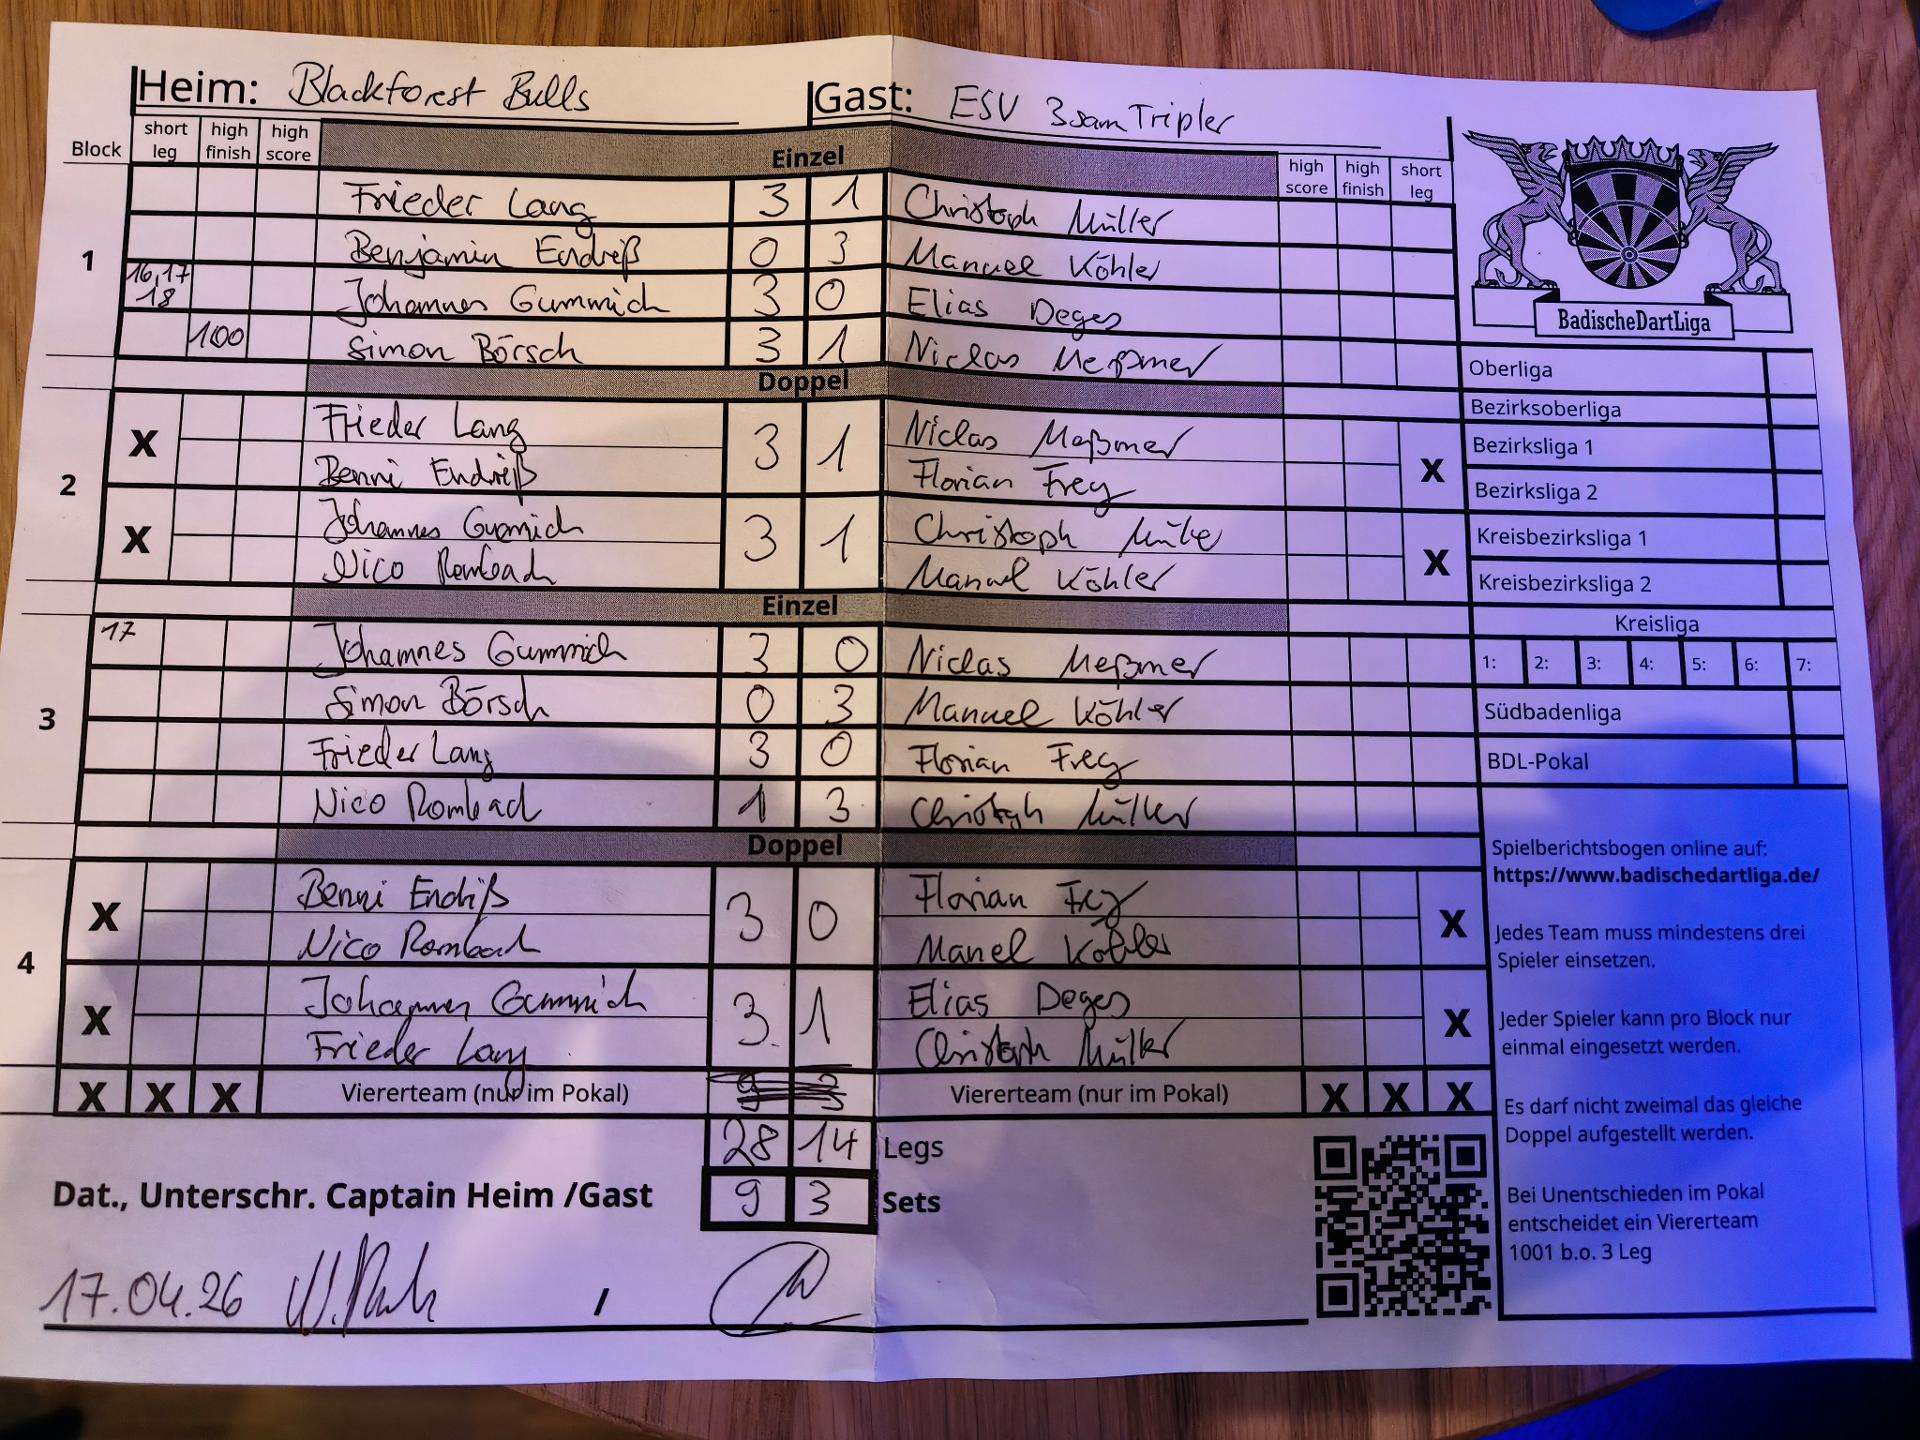 Heim: Blackforest Bulls Gast: ESV 3sam Tripler
Block short leg high finish high score Einzel high score high finish short leg
1
Frieder Lang 3 1 Christoph Müller
Benjamin Endreß 0 3 Manuel Köhler
16,17 18 Johannes Gummich 3 0 Elias Deges
100 Simon Börsch 3 1 Niclas Meßmer
Doppel
2
X Frieder Lang 3 1 Niclas Meßmer X
Benni Endriß Florian Frey
X Johannes Gummich 3 1 Christoph Müller X
Nico Rombach Manuel Köhler
Einzel
3
17 Johannes Gummich 3 0 Niclas Meßmer
Simon Börsch 0 3 Manuel Köhler
Frieder Lang 3 0 Florian Frey
Nico Rombach 1 3 Christoph Müller
Doppel
4
X Benni Endriß 3 0 Florian Frey X
Nico Rombach Manel Köhler
X Johannes Gummich 3 1 Elias Deges X
Frieder Lang Christoph Müller
X X X Viererteam (nur im Pokal) Viererteam (nur im Pokal) X X X
28 14 Legs
Dat., Unterschr. Captain Heim /Gast 9 3 Sets
17.04.26 /
BadischeDartLiga
Oberliga
Bezirksoberliga
Bezirksliga 1
Bezirksliga 2
Kreisbezirksliga 1
Kreisbezirksliga 2
Kreisliga
1: 2: 3: 4: 5: 6: 7:
Südbadenliga
BDL-Pokal
Spielberichtsbogen online auf:
https://www.badischedartliga.de/
Jedes Team muss mindestens drei
Spieler einsetzen.
Jeder Spieler kann pro Block nur
einmal eingesetzt werden.
Es darf nicht zweimal das gleiche
Doppel aufgestellt werden.
Bei Unentschieden im Pokal
entscheidet ein Viererteam
1001 b.o. 3 Leg